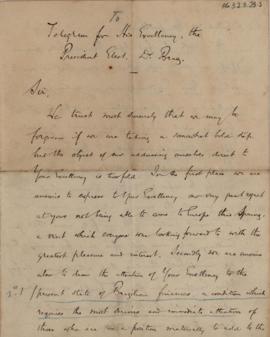 To
Telegram for His Excellency, the
President Elect, Dr. Braz.
Sir,
We trust most sincerely that we may be
forgiven if we are taking a somewhat bold step
but the object of our addressing ourselves direct to
Your Excellency is twofold. In the first place we are
anxious to express to Your Excellency our very great regret
at your not being able to come to Europe this Spring,
a visit which everyone was looking forward to with the
greatest pleasure and interest. Secondly we are anxious
also to draw the attention of Your Excellency to the
present state of Brazilian finances, a condition which
requires the most serious and immediate attention of
those who are in a position materially to add to the